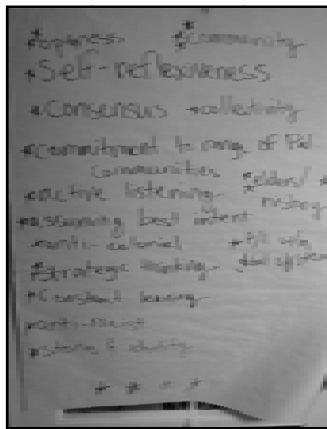 *openness *community
*Self-reflexiveness
*Consensus *collectivity
*Commitment to range of Pal
communities
*active listening *elders/
*assuming best intent history
*anti-colonial
*Strategic thinking
*Constant learning
*anti-racist
* * * *